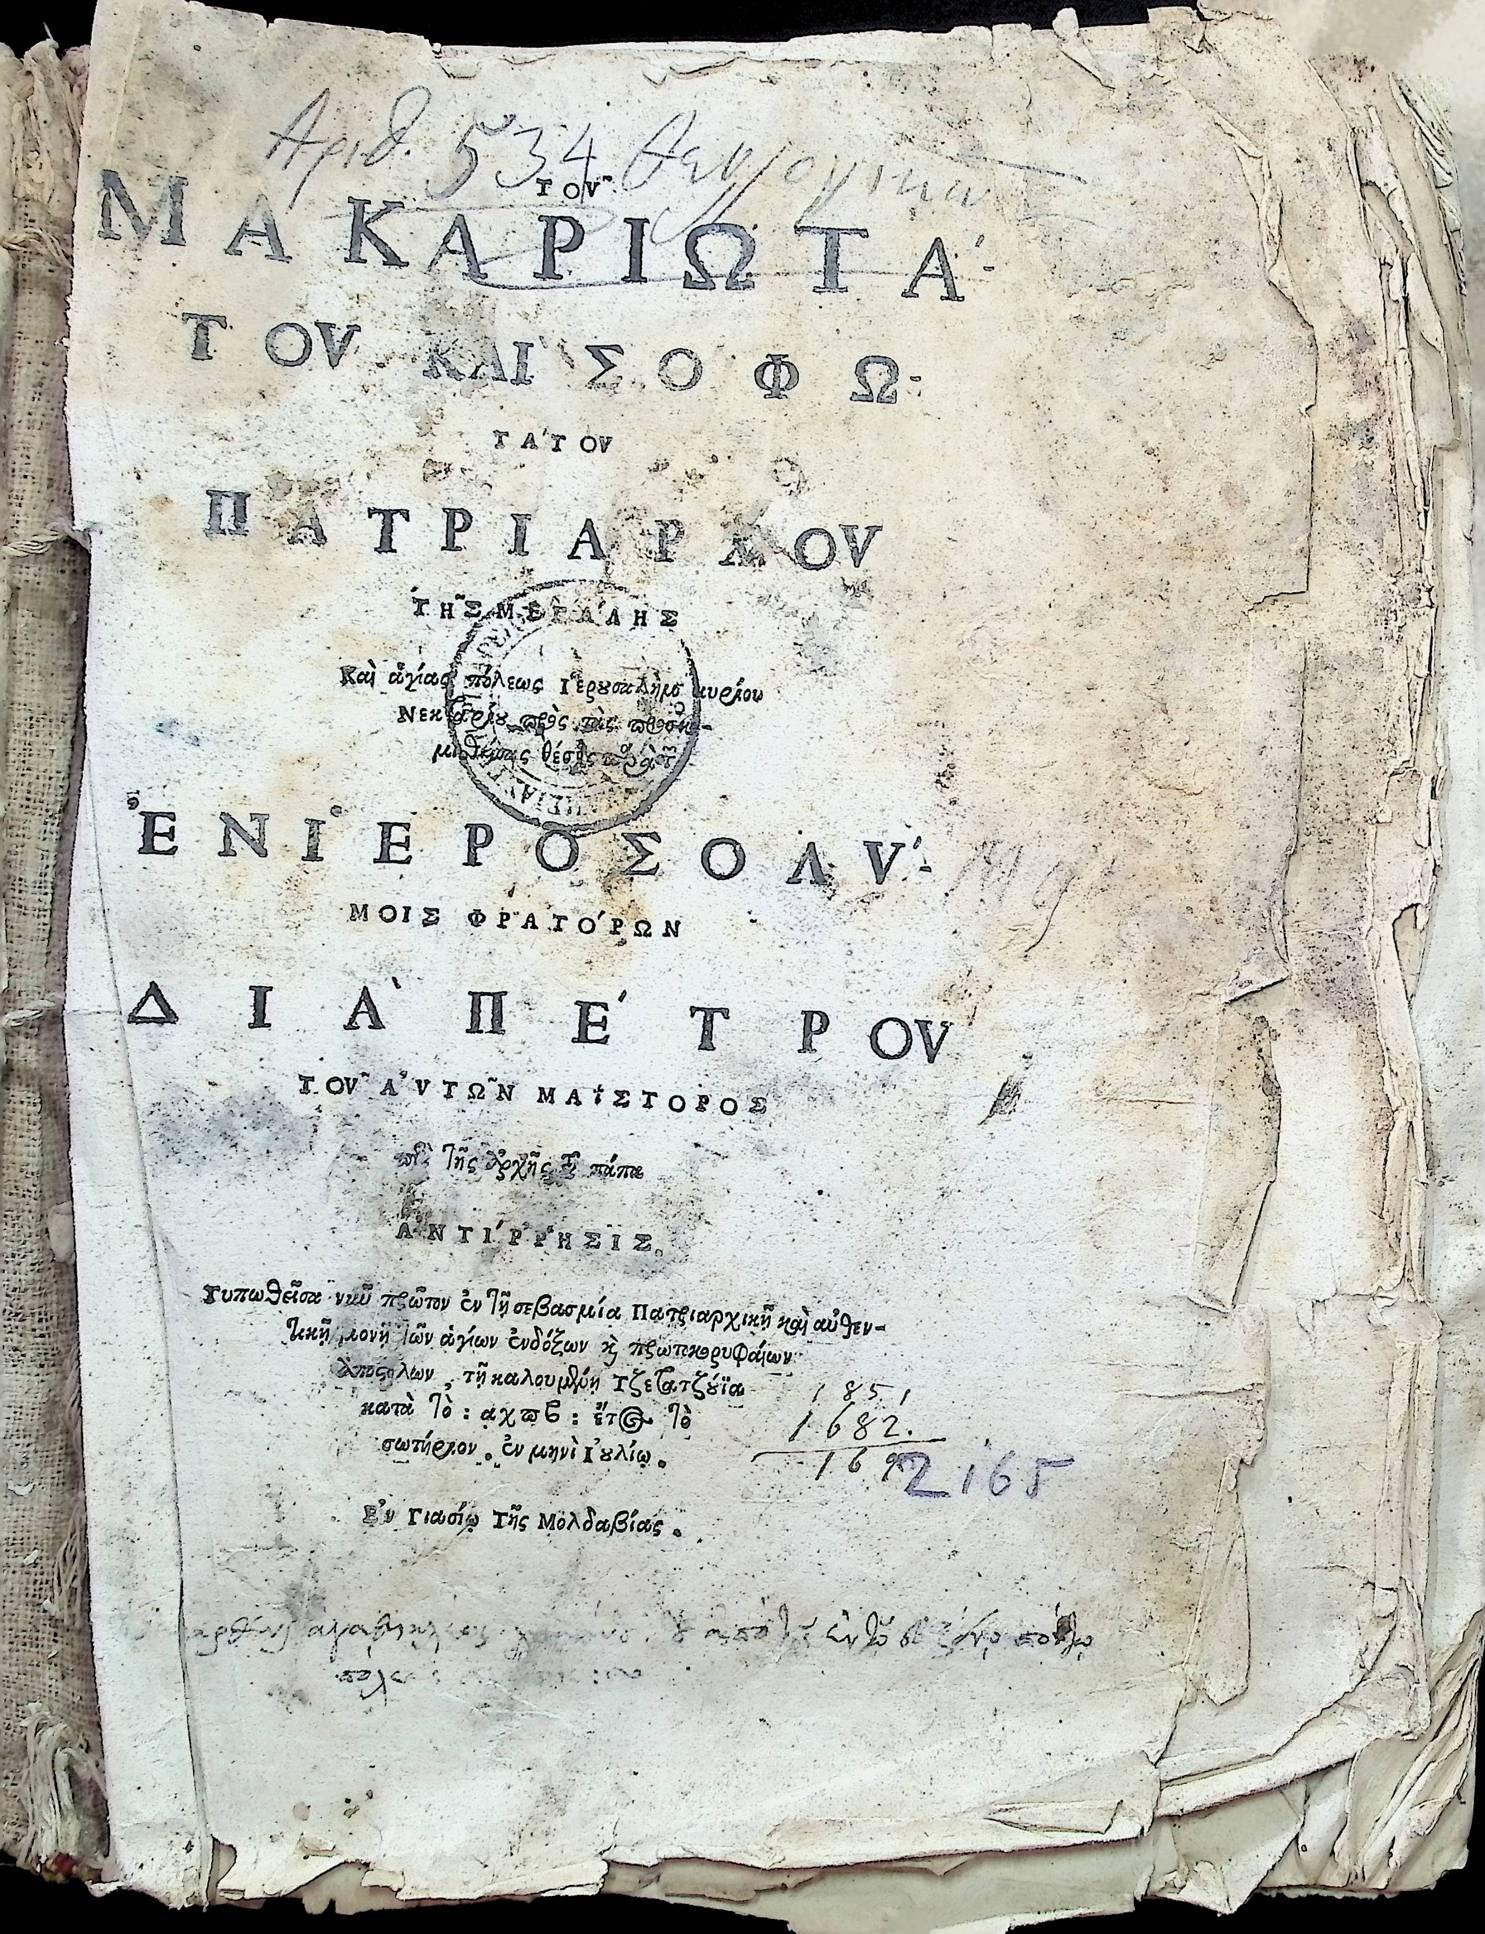 Αριθ. 534 Θεολογικῶν
ΤΟΥ͂
ΜΑΚΑΡΙΩΤΆ-
ΤΟΥ ΚΑῚ ΣΟΦΩ-
ΤΆΤΟΥ
ΠΑΤΡΙΑΡΧΟΥ
ΤΗ͂Σ ΜΕΓΆΛΗΣ
Καὶ ἁγίας πόλεως Ἱερουσαλὴμ κυρίου
Νεκταρίου πρὸς τὰς προσκο-
μισθείσας θέσεις παρὰ τῶν
ἘΝ ἹΕΡΟΣΟΛΎ-
ΜΟΙΣ ΦΡΑΤΌΡΩΝ
ΔΙᾺ ΠΈΤΡΟΥ
ΤΟΥ͂ ΑΥ̓ΤΩ͂Ν ΜΑΐΣΤΟΡΟΣ
περὶ τῆς ἀρχῆς τοῦ πάπα
ἈΝΤΊΡΡΗΣΙΣ.
Τυπωθεῖσα νῦν πρῶτον ἐν τῇ σεβασμία Πατριαρχικῇ καὶ αὐθεν-
τικῇ μονῇ τῶν ἁγίων ἐνδόξων κ̀ πρωτοκορυφαίων
Ἀποςόλων, τῇ καλουμένῃ Τζετατζούϊα
κατὰ τὸ : αχπβ : ἔτος τὸ
σωτήριον. ἐν μηνὶ Ἰουλίῳ.
1851
1682.
169
2165
Ἐν Γιασίῳ τῆς Μολδαβίας.